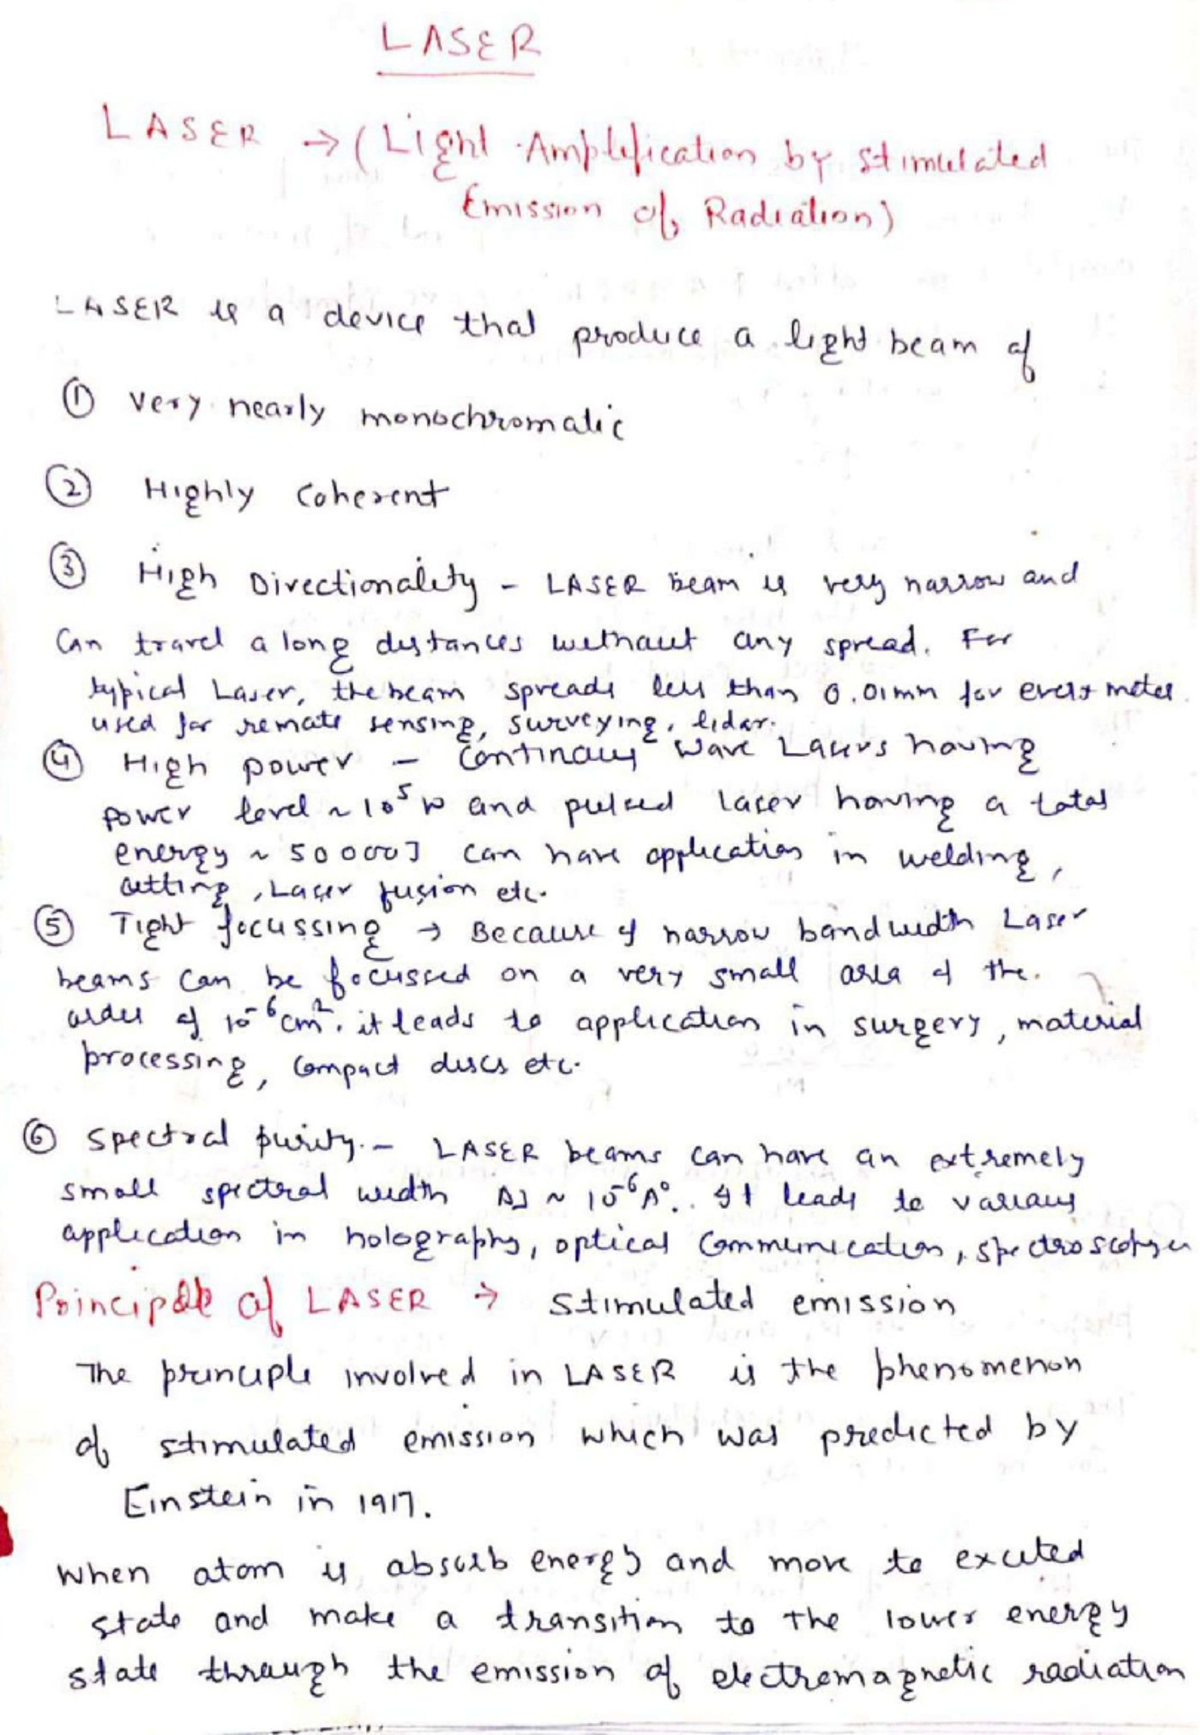 LASER
LASER → (Light Amplification by stimulated
Emission of Radiation)
LASER is a device that produce a light beam of
① very nearly monochromatic
② Highly Coherent
③ High Directionality - LASER beam is very narrow and
Can travel a long distances without any spread. For
typical Laser, the beam spreads less than 0.01mm for every meter.
used for remote sensing, surveying, lidar.
④ High power - Continous wave Lasers having
power level ~ 10⁵ W and pulsed laser having a total
energy ~ 50000J can have application in welding,
cutting, Laser fusion etc.
⑤ Tight focussing → Because of narrow bandwidth Laser
beams can be focussed on a very small area of the.
order of 10⁻⁶cm². it leads to application in surgery, material
processing, compact discs etc.
⑥ spectral purity. - LASER beams can have an extremely
small spectral width Δλ ~ 10⁻⁶A°. It leads to various
application in holography, optical communication, spectroscopy
Principle of LASER → stimulated emission
The principle involved in LASER is the phenomenon
of stimulated emission which was predicted by
Einstein in 1917.
When atom is absorb energy and move to excited
state and make a transition to the lower energy
state through the emission of electromagnetic radiation